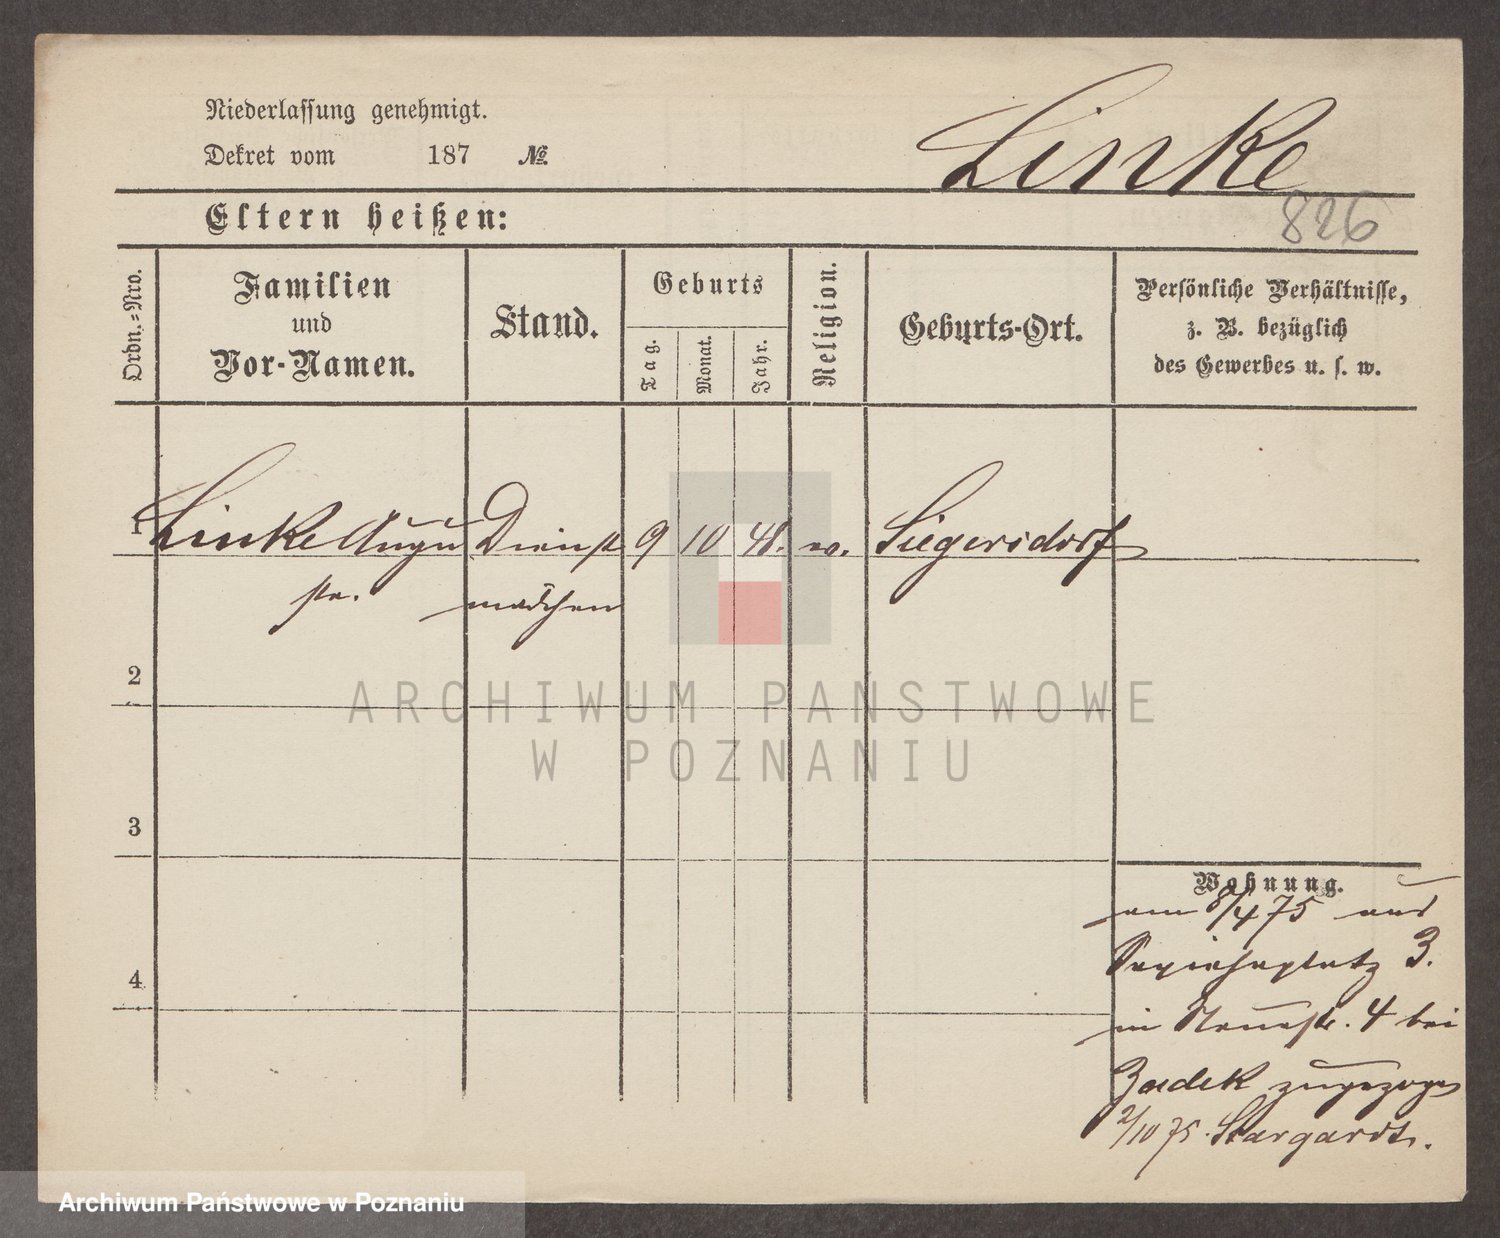 Niederlassung genehmigt.
Dekret vom 187 №
Linke
826
Eltern heißen:
Ordn.-Nro.
Familien
und
Vor-Namen.
Stand.
Geburts
Tag.
Monat.
Jahr.
Religion.
Geburts-Ort.
Persönliche Verhältnisse,
z. B. bezüglich
des Gewerbes u. s. w.
1 Linke Augu Dienst 9 10 48. ev. Siegersdorf
ste. mädchen
2
ARCHIWUM PAŃSTWOWE
W POZNANIU
3
Wohnung.
am 8/4 75 aus
Sapiehaplatz 3.
4
in Neuestr. 4 bei
Zadek zugezogen
2/10 75. Stargardt.
Archiwum Państwowe w Poznaniu